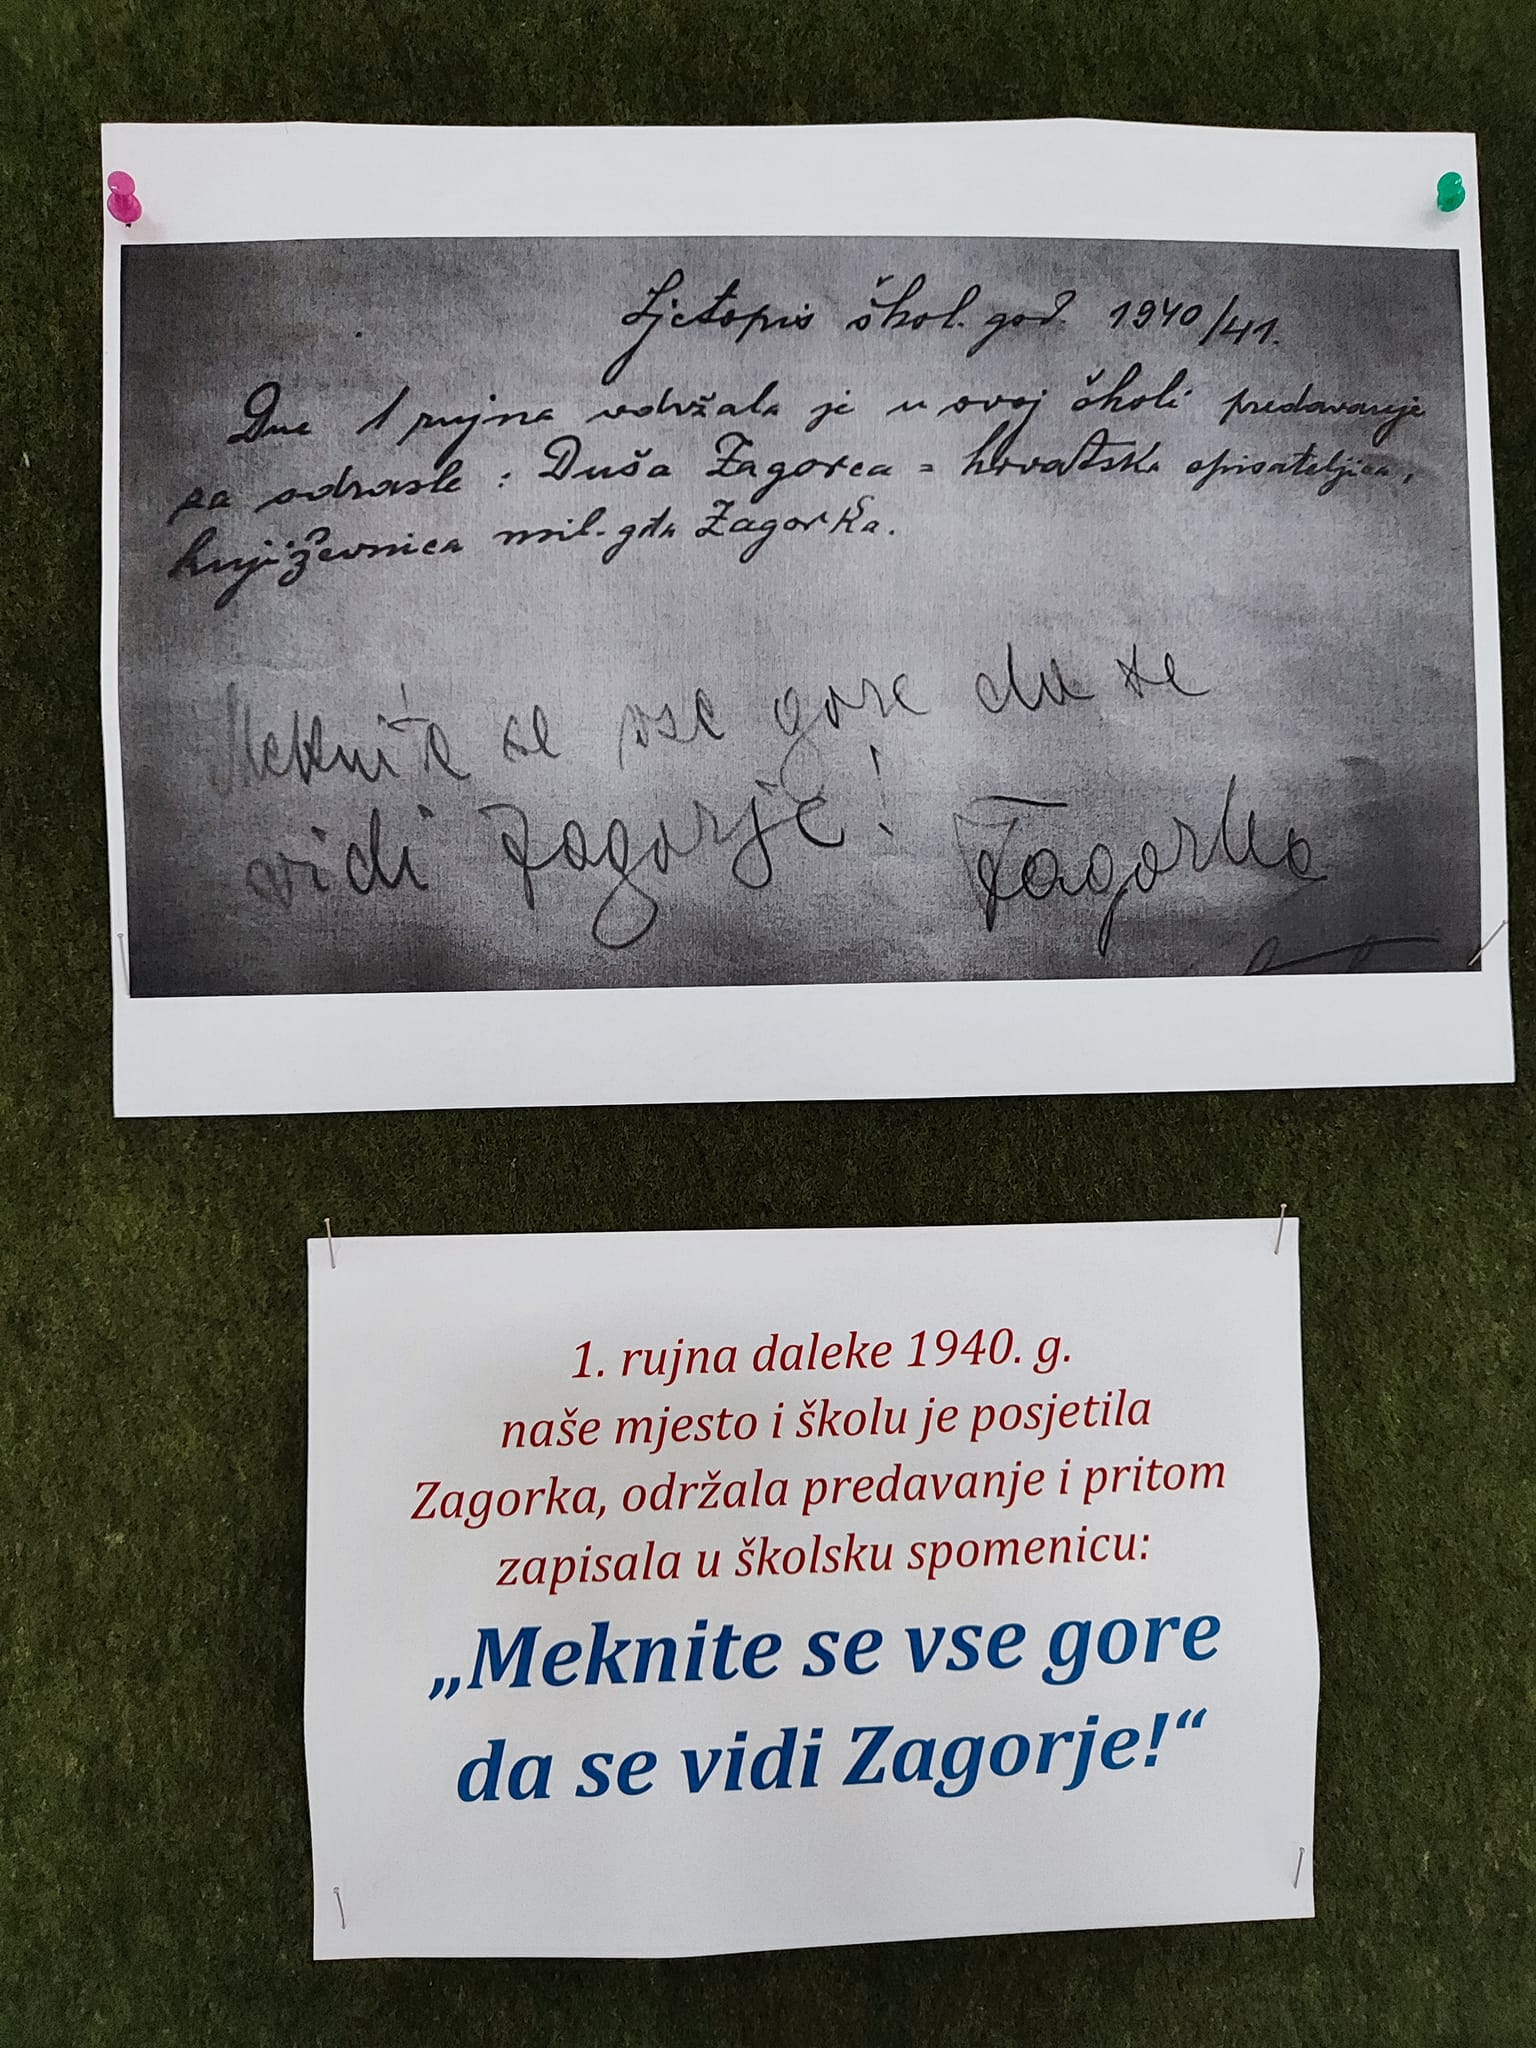 Ljetopis škol. god. 1940/41.
Dne 1 rujna održala je u ovoj školi predavanje
za odrasle: Duša Zagorca = hrvatska spisateljica,
književnica mil. gđa Zagorka.
Meknite se vse gore da se
vidi Zagorje! Zagorka
1. rujna daleke 1940. g.
naše mjesto i školu je posjetila
Zagorka, održala predavanje i pritom
zapisala u školsku spomenicu:
„Meknite se vse gore
da se vidi Zagorje!“